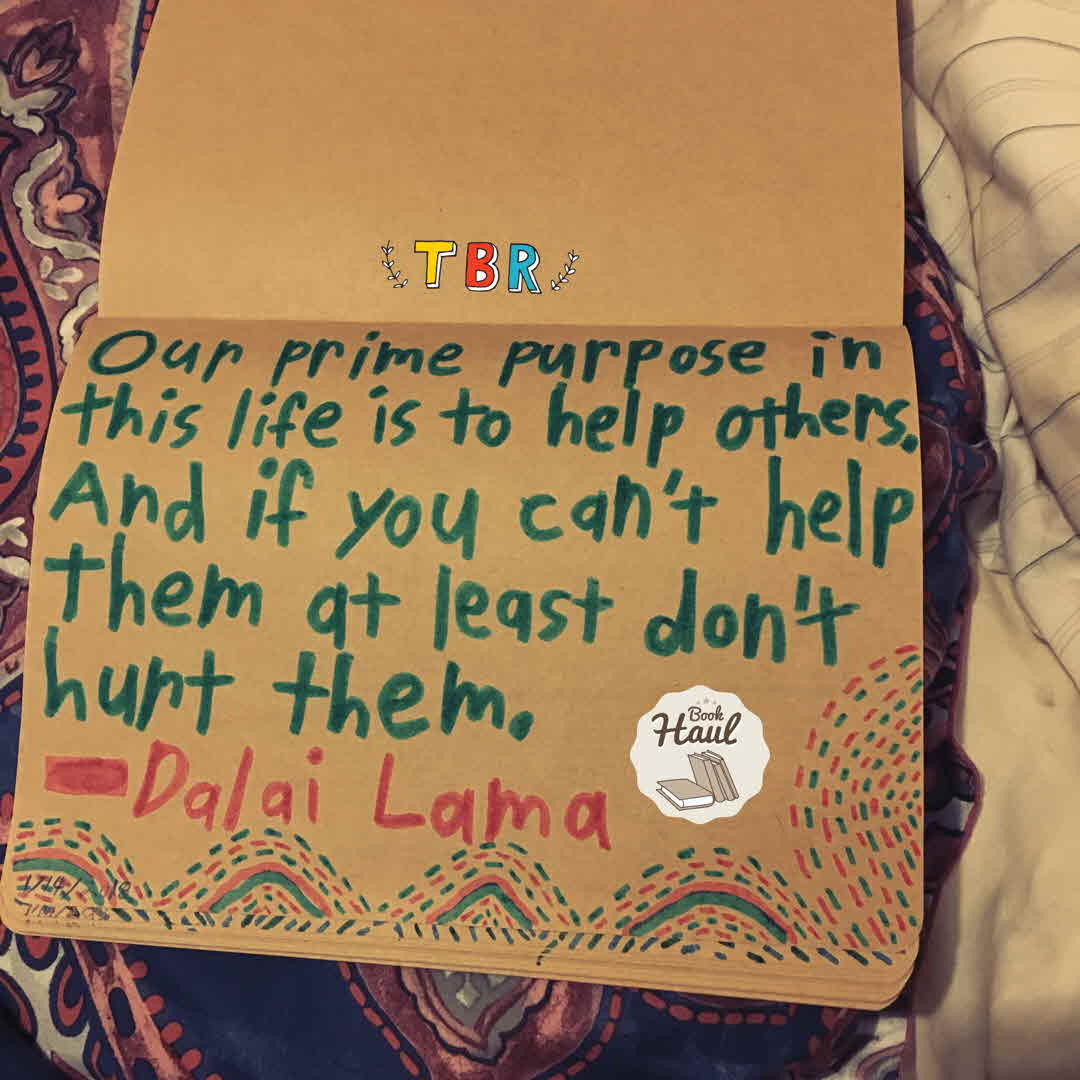 TBR
Our prime purpose in
this life is to help others.
And if you can't help
them at least don't
hurt them.
Book
Haul
—Dalai Lama